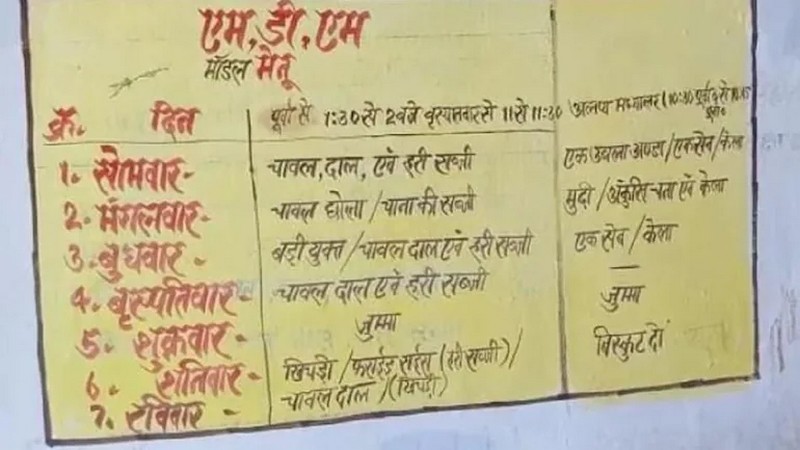 एम, डी, एम
मॉडल मेनू
क्र. दिन पूर्वा से 1:30 से 2 बजे वृस्पतवार से 11 से 11:30 मध्यान्तर (10:30
1. सोमवार - चावल, दाल, एवं हरी सब्जी एक उबला अण्डा / एक सेव / केला
2. मंगलवार - चावल छोला / चाना की सब्जी मुढ़ी / अंकुरित चना एवं केला
3. बुधवार - बड़ी युक्त / चावल दाल एवं हरी सब्जी एक सेव / केला
4. बृस्पतिवार - चावल दाल एवं हरी सब्जी —
5. शुक्रवार - जुम्मा जुम्मा
6. शनिवार - खिचड़ी / फराईड राईस (हरी सब्जी) / बिस्कुट दो
7. रविवार - चावल दाल / (खिचड़ी)